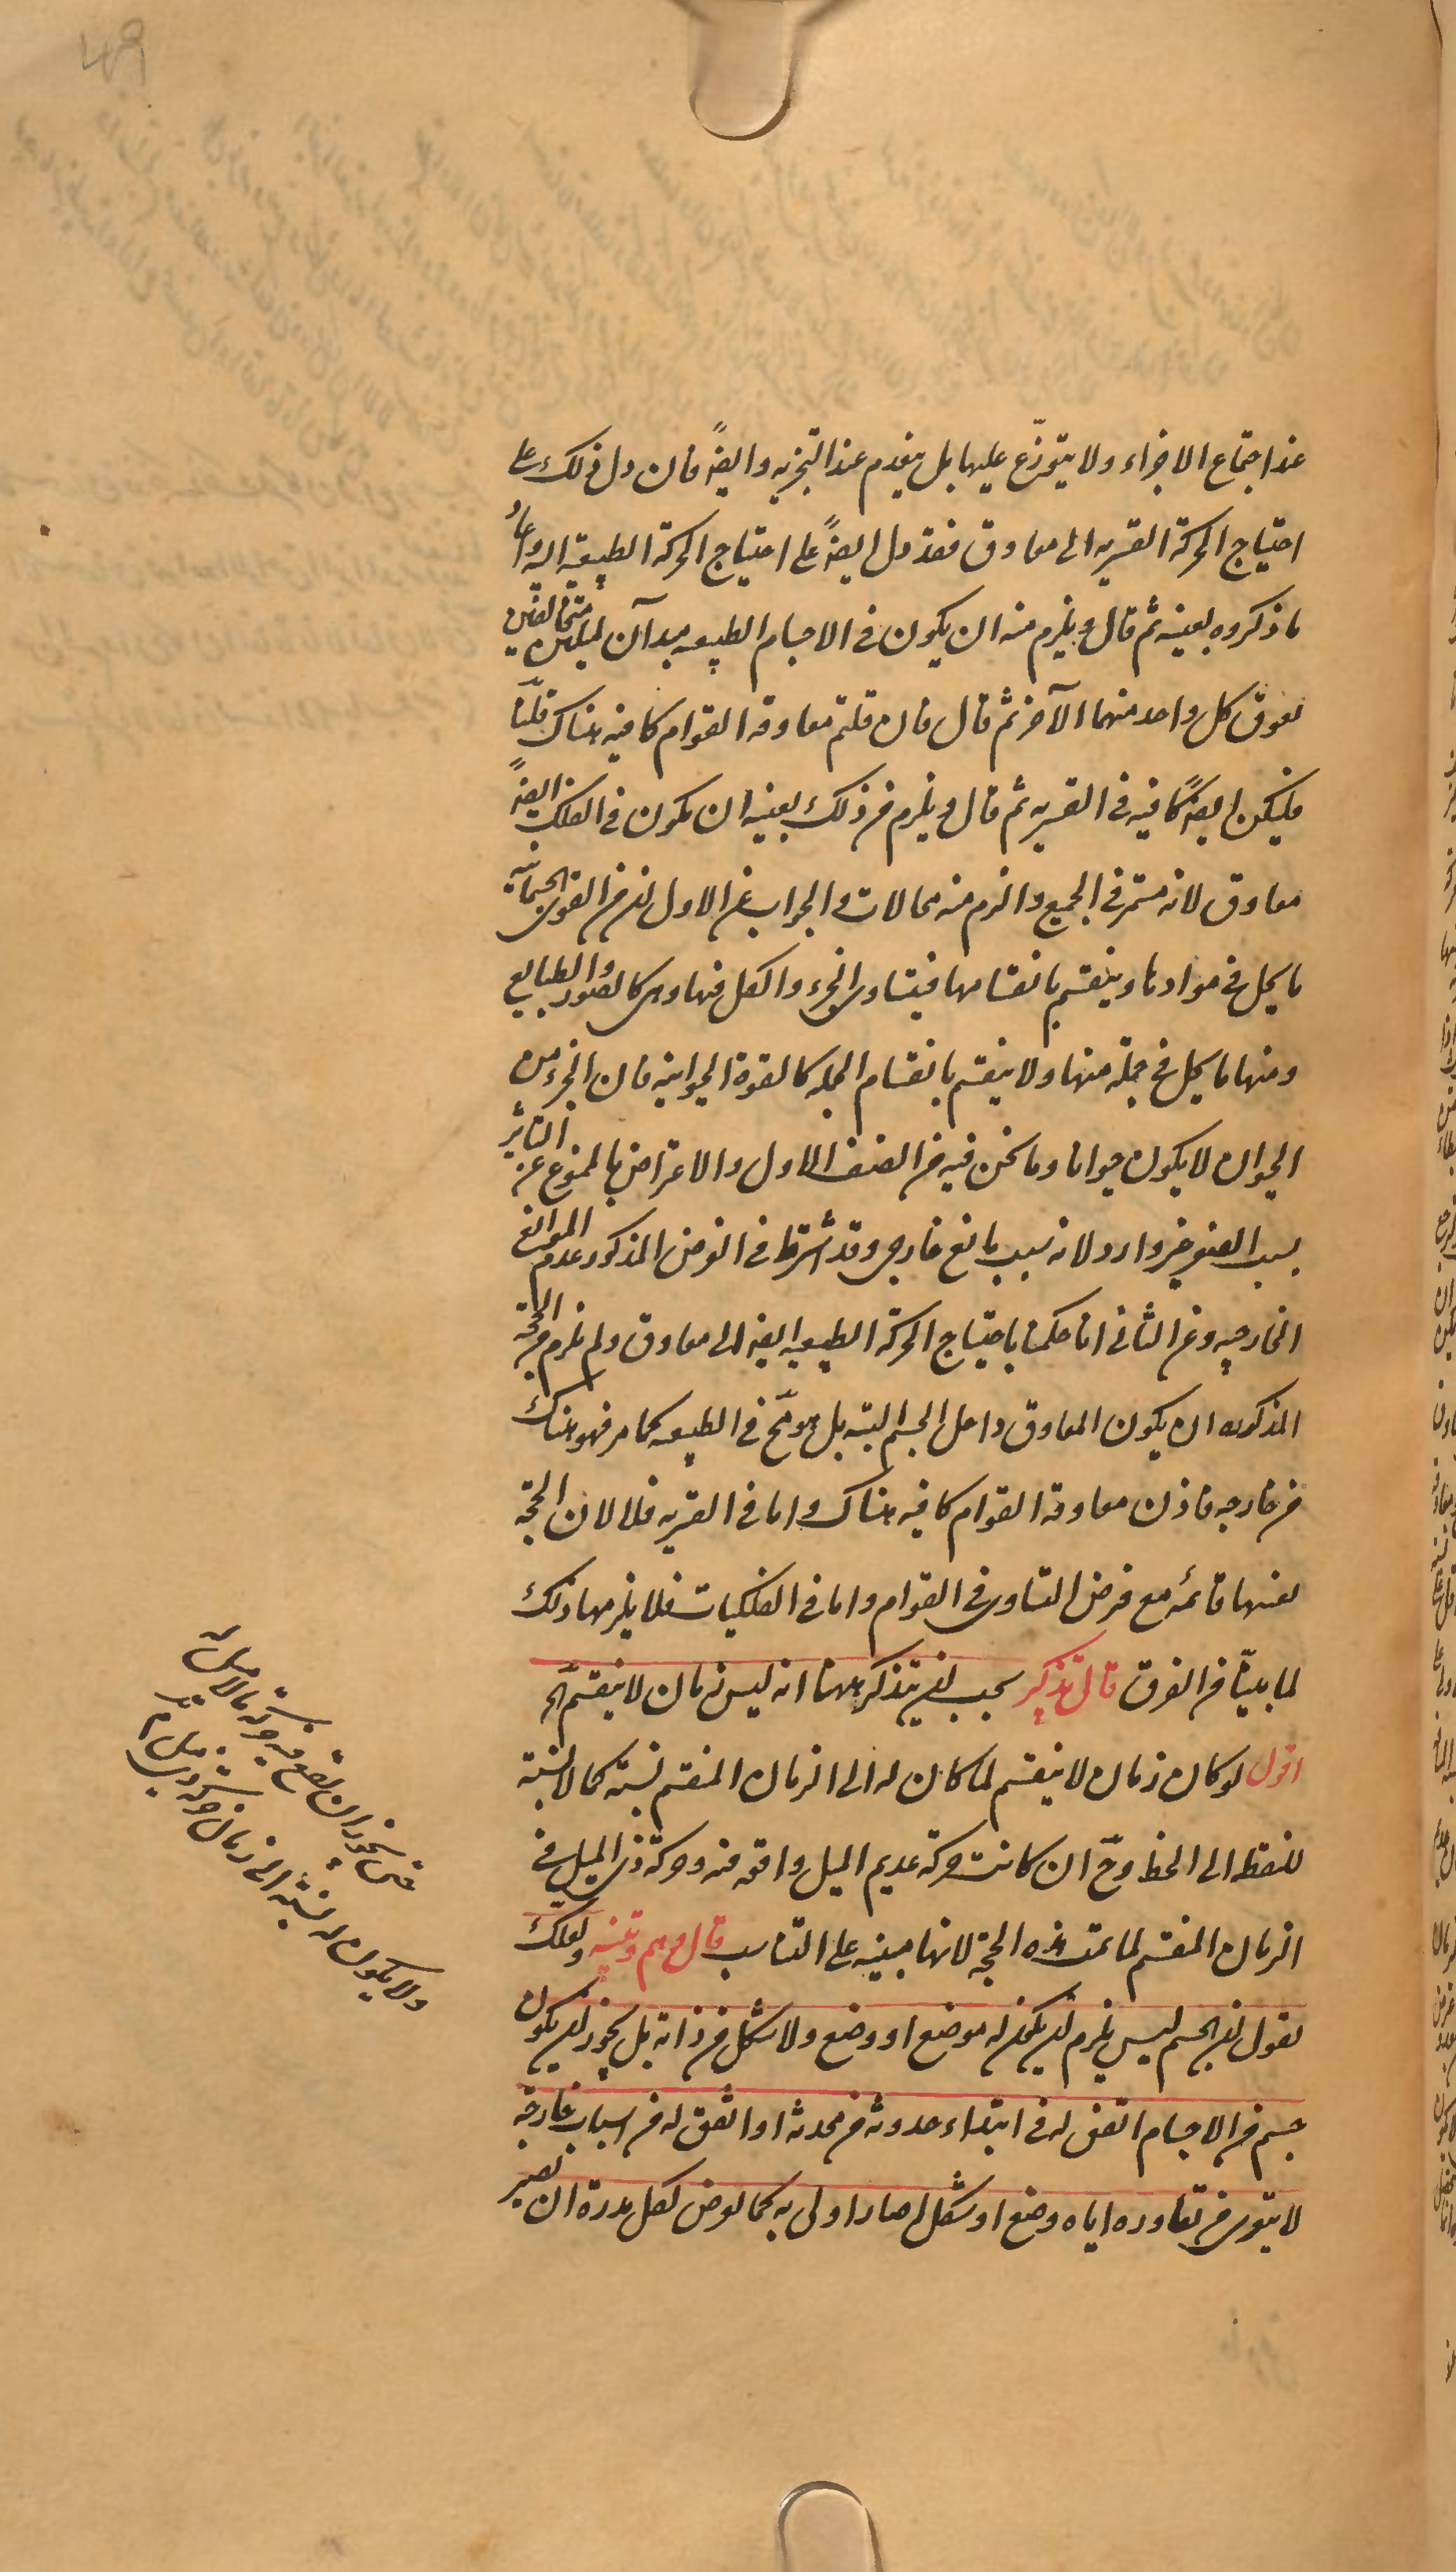 عند اجتماع الاجزاء ولا يتوزّع عليها بل ينعدم عند التجزيه وايضاً فان دل ذلك على
احتياج الحركة القسريه الى معاوق فقد دل ايضاً على احتياج الحركة الطبيعيه اليه واعاد
ما ذكروه بعينه ثم قال ويلزم منه ان يكون فى الاجسام الطبيعيه مبدآن لميلين متخالفين
يعوق كل واحد منهما الآخر ثم قال فان قلتم معاوقه القوام كافيه هناك قلنا
فليكن ايضاً كافيه فى القسريه ثم قال ويلزم من ذلك بعينه ان يكون فى الفلك ايضاً
معاوق لانه مستمر فى الجميع والزم منه محالات والجواب عن الاول ان من القوى الجسمانيه
ما يحل فى موادها وينقسم بانقسامها فيتساوى الجزء والكل فيها وهى كالصور والطبايع
ومنها ما يحل فى جملة منها ولا ينقسم بانقسام الجمله كالقوة الحيوانيه فان الجزء من
الحيوان لا يكون حيوانا وما نحن فيه من الصنف الاول والاعتراض بالممنوع عن التاثير
بسبب الصغر غير وارد لانه بسبب مانع خارجى وقد اشترط فى الفرض المذكور عدم الموانع
الخارجيه وعن الثانى انا حكمنا باحتياج الحركة الطبيعيه ايضا الى معاوق ولم يلزم من الحجة
المذكوره ان يكون المعاوق داخل الجسم البته بل هو ممتنع فى الطبيعيه كما مر فهو هناك
من خارجه فاذن معاوقه القوام كافيه هناك واما فى القسريه فلا لان الحجّة
بعينها قائمه مع فرض التساوى فى القوام واما فى الفلكيات فلا يلزمها ذلك
لما بينّا من الفرق قال تذكير يجب ان يتذكر ههنا انه ليس زمان لا ينقسم الخ
اقول لو كان زمان لا ينقسم لما كان له الى الزمان المنقسم نسبة كما لا نسبة
للنقطه الى الخط وح ان كانت حركة عديم الميل واقعه فيه وحركة ذى الميل فى
الزمان المنقسم لما تمت هذه الحجة لانها مبنيه على التناسب قال وهم وتنبيه ولعلك
تقول ان الجسم ليس يلزم ان يكون له موضع او وضع ولا شكل من ذاته بل يجوز ان يكون
جسم من الاجسام اتفق له فى ابتداء حدوثه من محدثه او اتفق له من اسباب خارجة
لا يتعرى من تعاوره اياه وضع او شكل صار اولى به كما يعرض لكل مدرة ان تصير
حتى يجوز ان تقع فيه حركة ما لا ميل له
ولا يكون له نسبة الى زمان حركة ذى ميل